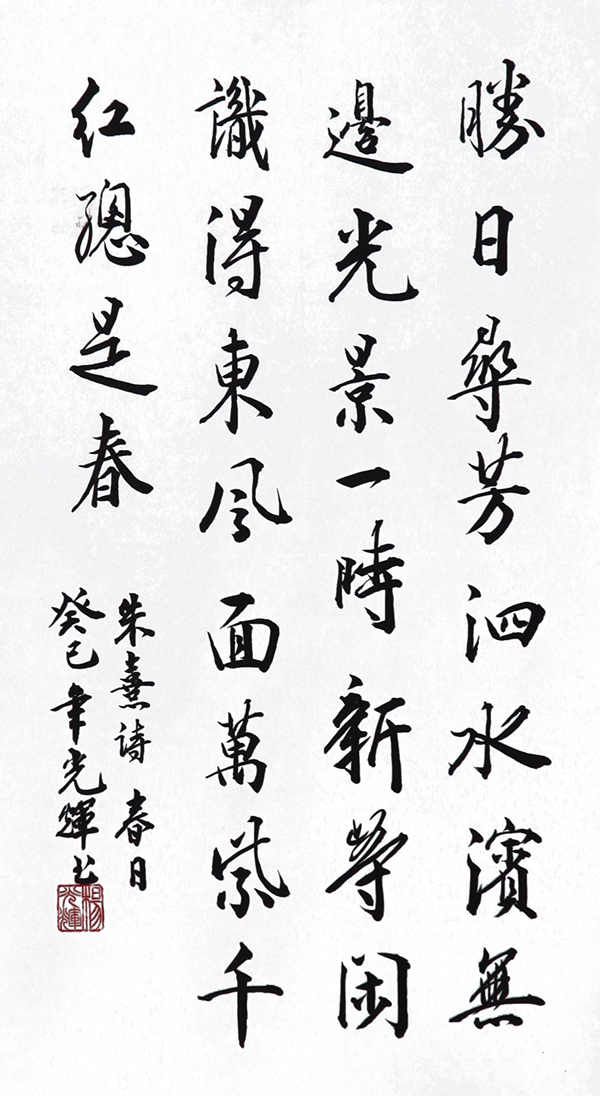 勝日尋芳泗水濱無
邊光景一時新等閑
識得東風面萬紫千
紅總是春
朱熹詩 春日
癸巳年光輝书
楊光輝